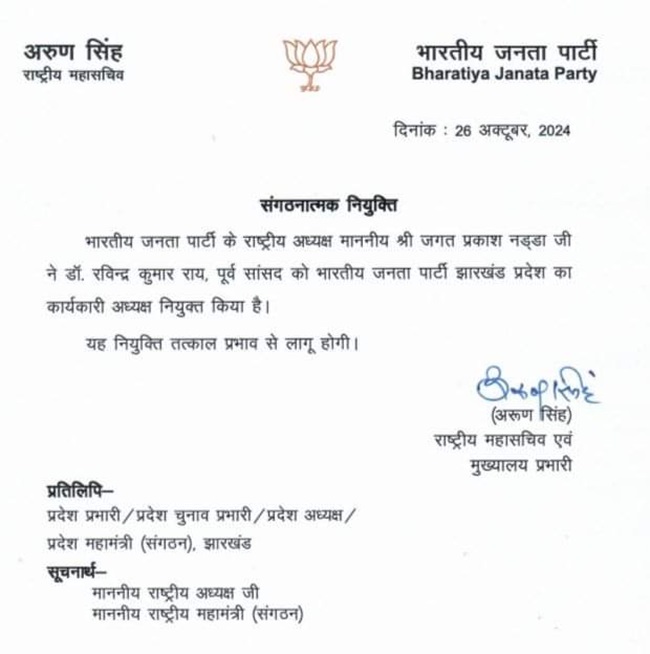 अरुण सिंह
राष्ट्रीय महासचिव
भारतीय जनता पार्टी
Bharatiya Janata Party
दिनांक : 26 अक्टूबर, 2024
संगठनात्मक नियुक्ति
भारतीय जनता पार्टी के राष्ट्रीय अध्यक्ष माननीय श्री जगत प्रकाश नड्डा जी
ने डॉ. रविन्द्र कुमार राय, पूर्व सांसद को भारतीय जनता पार्टी झारखंड प्रदेश का
कार्यकारी अध्यक्ष नियुक्त किया है।
यह नियुक्ति तत्काल प्रभाव से लागू होगी।
अरुण सिंह
(अरूण सिंह)
राष्ट्रीय महासचिव एवं
मुख्यालय प्रभारी
प्रतिलिपि–
प्रदेश प्रभारी/प्रदेश चुनाव प्रभारी/प्रदेश अध्यक्ष/
प्रदेश महामंत्री (संगठन), झारखंड
सूचनार्थ–
माननीय राष्ट्रीय अध्यक्ष जी
माननीय राष्ट्रीय महामंत्री (संगठन)